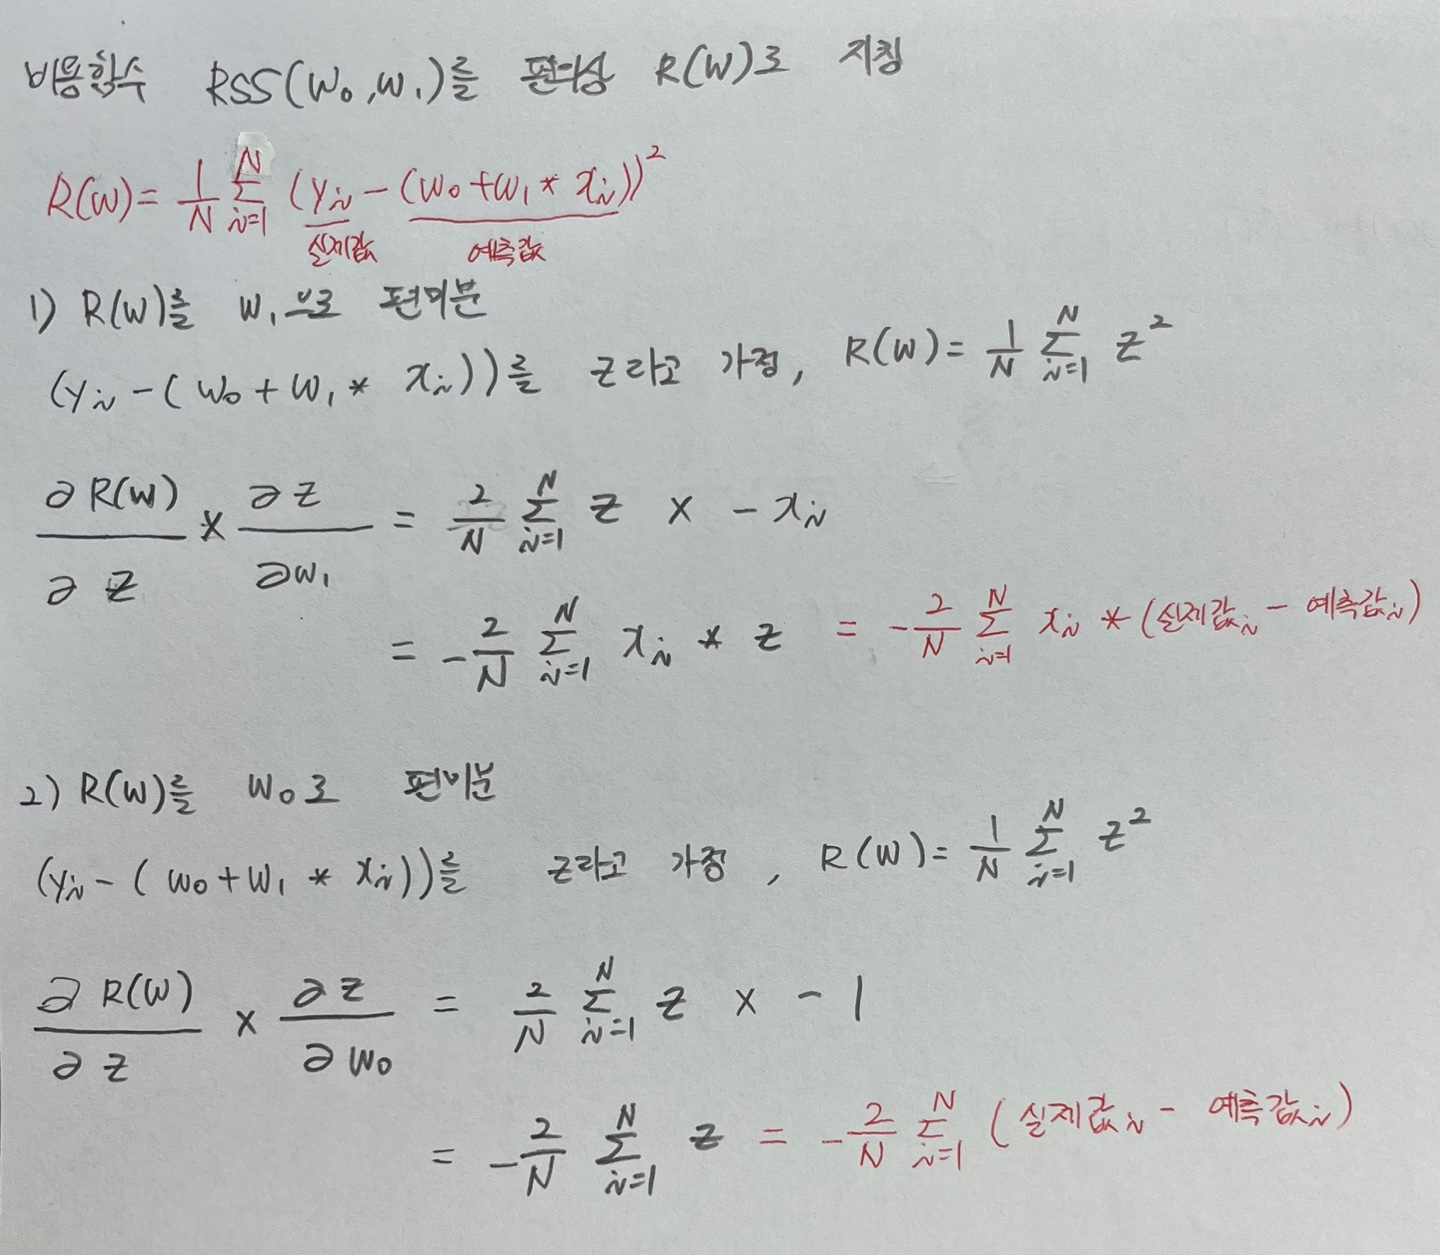 비용함수 RSS(W₀,W₁)를 편의상 R(W)로 지칭
R(W) = 1/N Σ_{i=1}^{N} (yᵢ - (w₀ + w₁ * xᵢ))²
실제값 예측값
1) R(W)를 W₁으로 편미분
(yᵢ - (w₀ + w₁ * xᵢ))를 z라고 가정, R(W) = 1/N Σ_{i=1}^{N} z²
∂R(W)/∂z × ∂z/∂w₁ = 2/N Σ_{i=1}^{N} z × -xᵢ
= -2/N Σ_{i=1}^{N} xᵢ * z = -2/N Σ_{i=1}^{N} xᵢ * (실제값ᵢ - 예측값ᵢ)
2) R(W)를 W₀로 편미분
(yᵢ - (w₀ + w₁ * xᵢ))를 z라고 가정, R(W) = 1/N Σ_{i=1}^{N} z²
∂R(W)/∂z × ∂z/∂w₀ = 2/N Σ_{i=1}^{N} z × -1
= -2/N Σ_{i=1}^{N} z = -2/N Σ_{i=1}^{N} (실제값ᵢ - 예측값ᵢ)